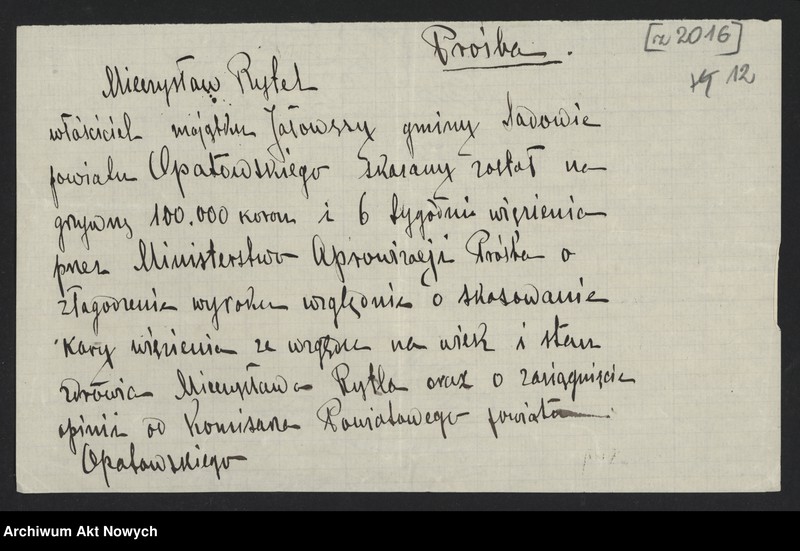 Prośba.
[rz 2016]
12
Mieczysław Rytel
właściciel majątku Jałowęzy gminy Sadowie
powiatu Opatowskiego skazany został na
grzywnę 100.000 koron i 6 tygodni więzienia
przez Ministerstwo Aprowizacji Prośba o
złagodzenie wyroku względnie o skasowanie
kary więzienia ze względu na wiek i stan
zdrowia Mieczysława Rytla oraz o zasiągnięcie
opinii od Komisarza Powiatowego powiatu
Opatowskiego
Archiwum Akt Nowych